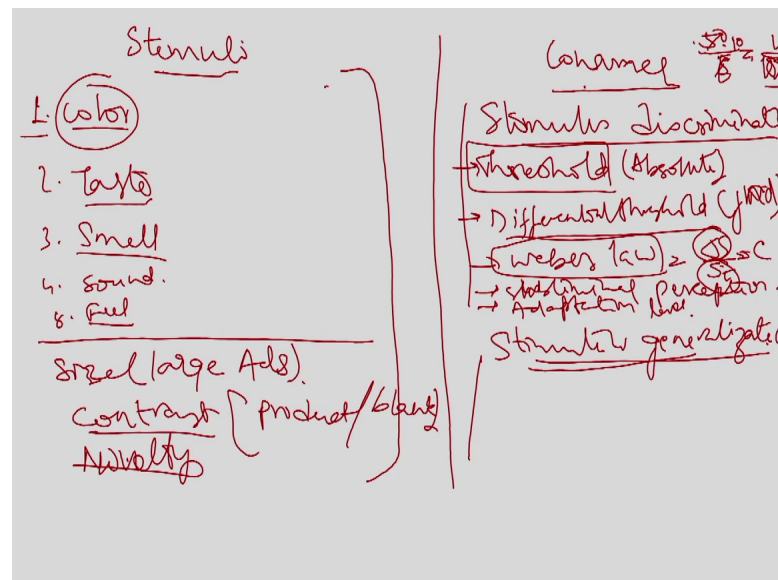 Stemuli
1. color
2. Taste
3. Smell
4. Sound.
5. Feel
Size (large Ads).
Contrast (product/blank)
Novolty
Consumer
Stimulus discriminat
→ threshold (Absolute)
→ Differential threshold (jnd)
→ webers law = ΔS = C
→ subliminal Perception.
→ Adaptation level.
Stimulus generalizatio